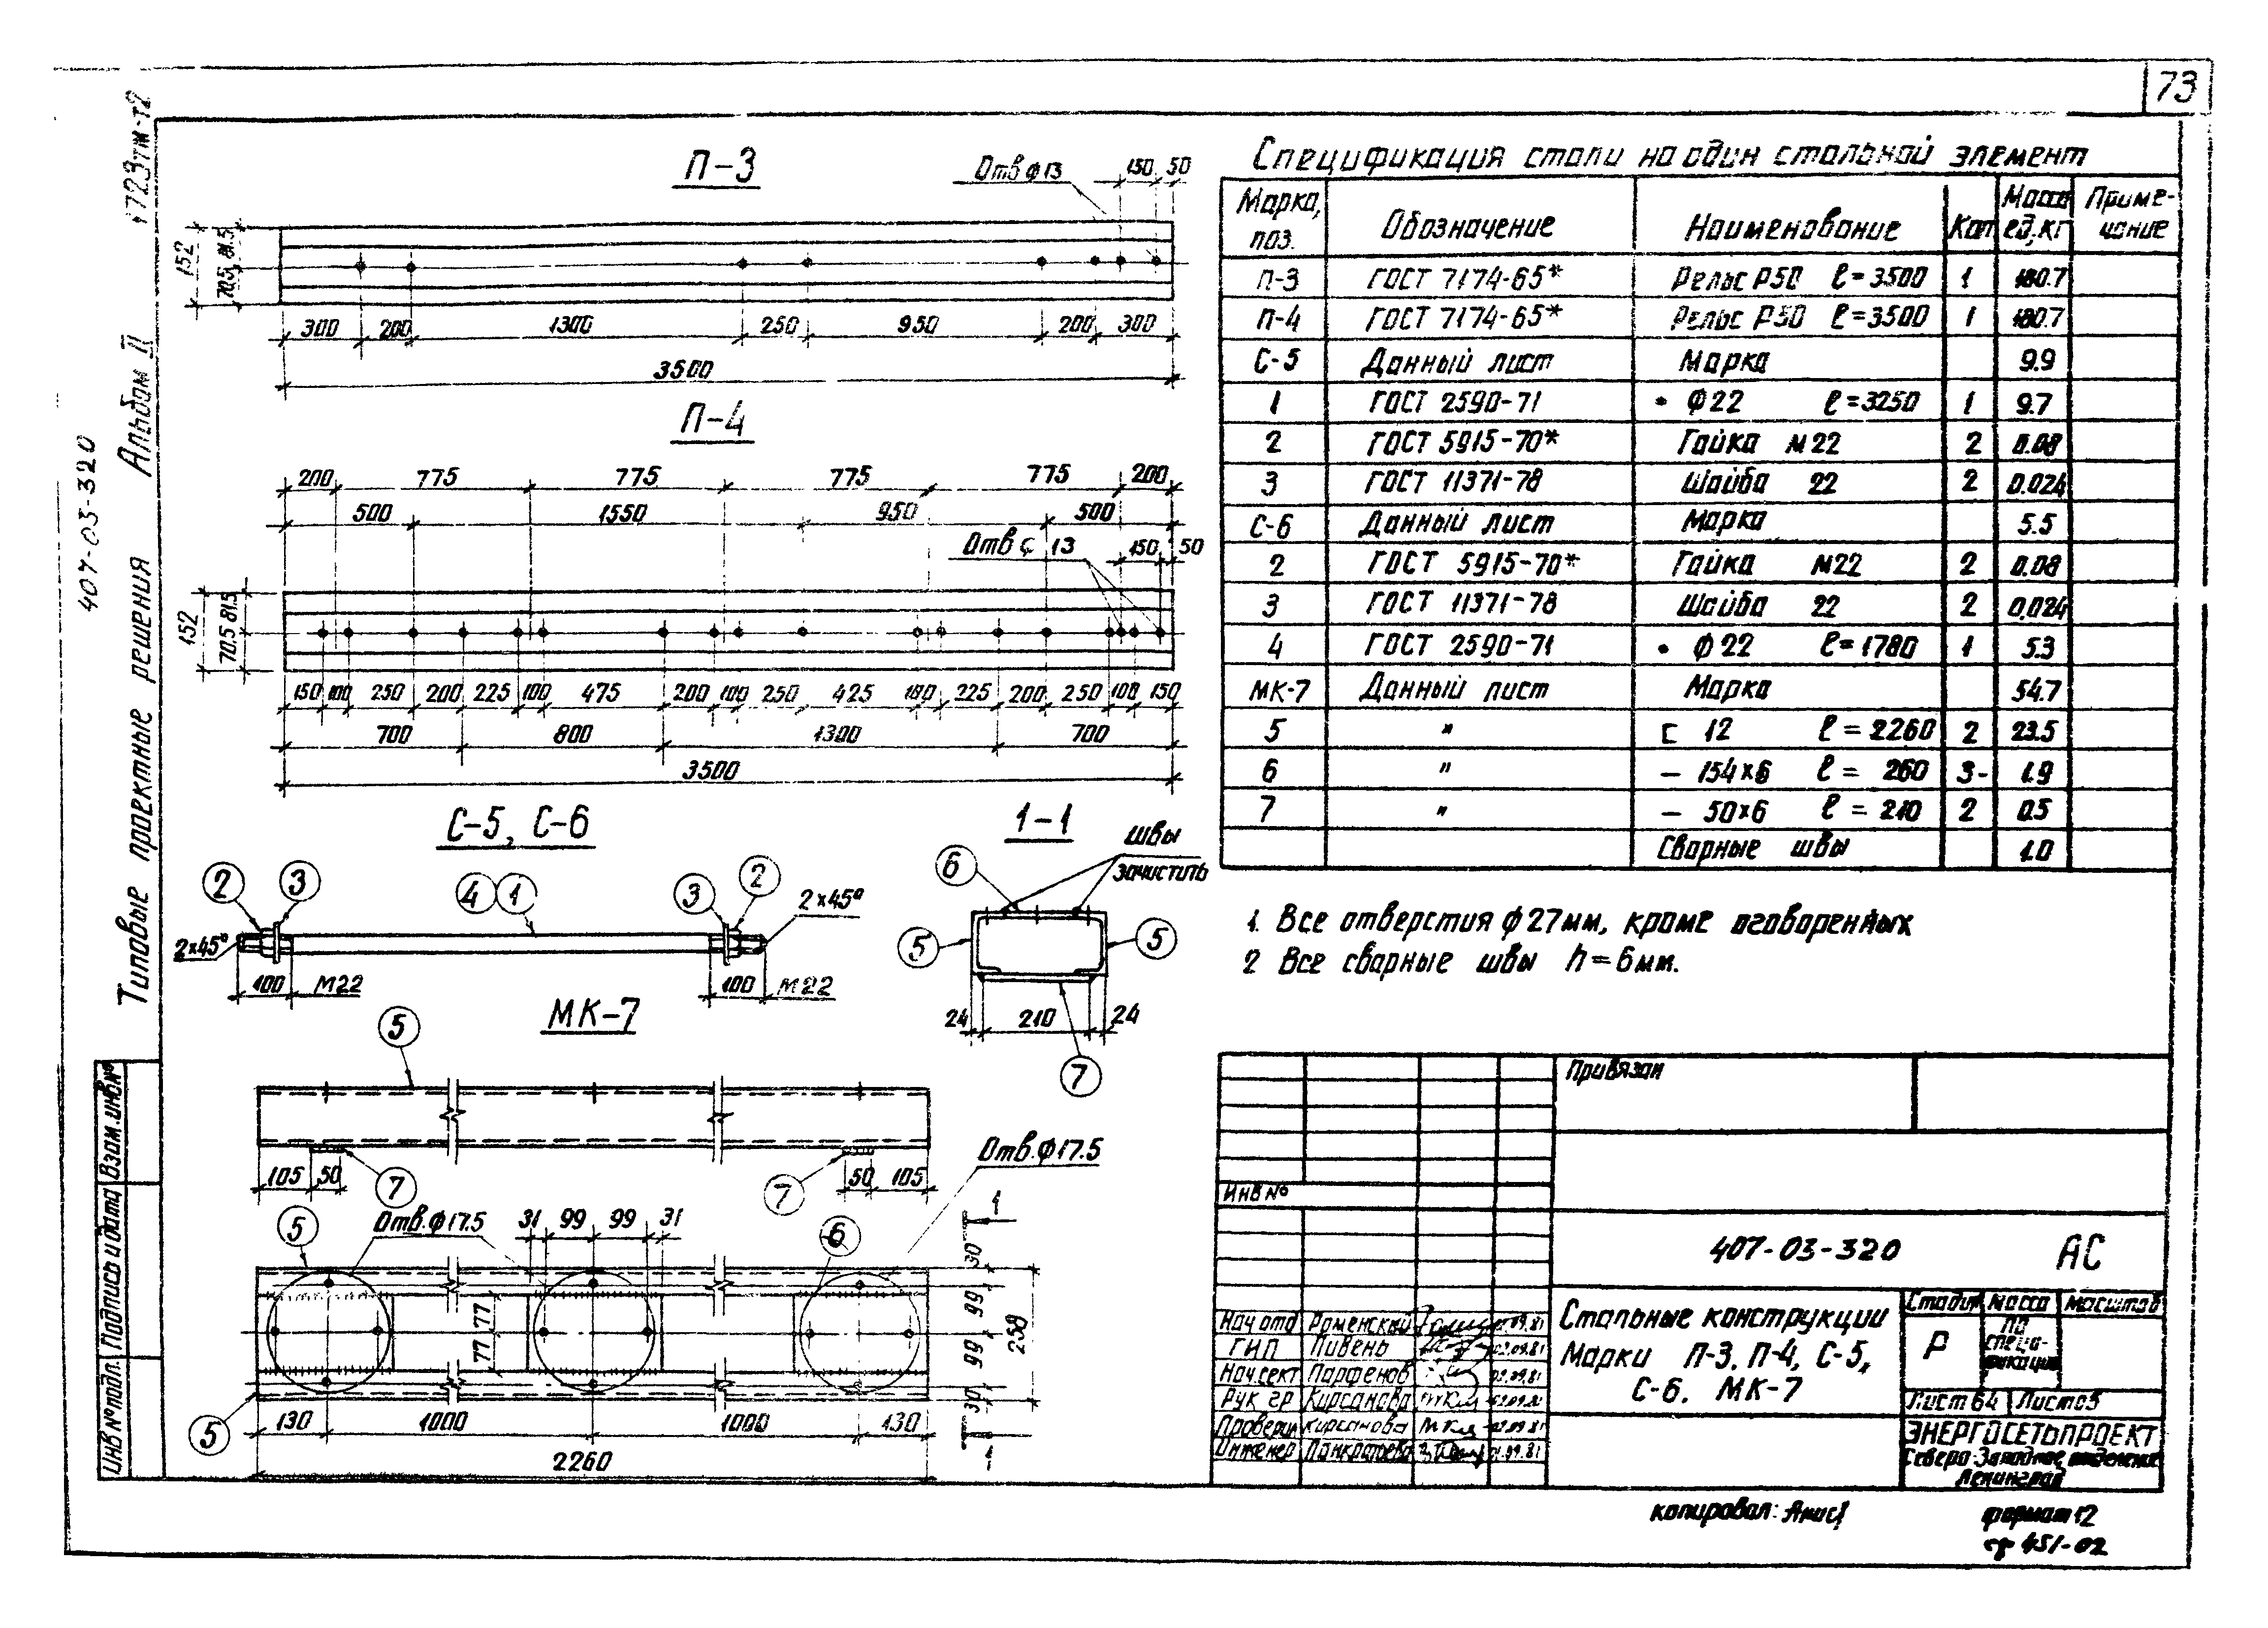 73
Типовые проектные решения Альбом II
407-03-320
П-3
Отв ф13
150 50
152
70,5 81.5
300 200 1300 250 950 200 300
3500
П-4
200 775 775 775 775 200
500 1550 950 500
13
150 50
152
70,5 81.5
150 100 250 200 225 100 475 200 100 250 425 100 225 200 250 100 150
700 800 1300 700
3500
С-5, С-6
2 3 4 1 3 2
2×45° 2×45°
100 М22 100 М22
1-1
швы
зачистить
6
5 5
24 210 24
7
МК-7
5
105 50 7 7 50 105
Отв.ф17.5
5 Отв.ф17.5 31 99 99 31 6
1
77 77
30 99 99 30
258
5
130 1000 1000 130
2260
1
Спецификация стали на один стальной элемент
Марка, поз. Обозначение Наименование Кол Масса ед,кг Примечание
П-3 ГОСТ 7174-65* Рельс Р50 ℓ=3500 1 180.7
П-4 ГОСТ 7174-65* Рельс Р50 ℓ=3500 1 180.7
С-5 Данный лист Марка 9.9
1 ГОСТ 2590-71 • ф22 ℓ=3250 1 9.7
2 ГОСТ 5915-70* Гайка М22 2 0.08
3 ГОСТ 11371-78 Шайба 22 2 0.024
С-6 Данный лист Марка 5.5
2 ГОСТ 5915-70* Гайка М22 2 0.08
3 ГОСТ 11371-78 Шайба 22 2 0,024
4 ГОСТ 2590-71 • ф22 ℓ=1780 1 5.3
МК-7 Данный лист Марка 54.7
5 " [ 12 ℓ=2260 2 23.5
6 " — 154×6 ℓ= 260 3- 1.9
7 " — 50×6 ℓ= 210 2 0.5
Сварные швы 1.0
1. Все отверстия ф27мм, кроме оговоренных
2 Все сварные швы h=6мм.
Привязан
Инв №
407-03-320 АС
Нач отд Роменский
ГИП Пивень 02.09.81
Нач.сект Парфенов 02.09.81
Рук гр Кирсанова
Проверил Кирсанова 02.09.81
Инженер Панкратьева
Стальные конструкции
Марки П-3, П-4, С-5,
С-6, МК-7
Стадия Масса Масштаб
Р По специфи-кации
Лист 64 Листов
ЭНЕРГОСЕТЬПРОЕКТ
Северо-Западное отделение
Ленинград
Взам.инв.№
Подпись и дата
Инв № подл.
копировал:
формат 12
451-02